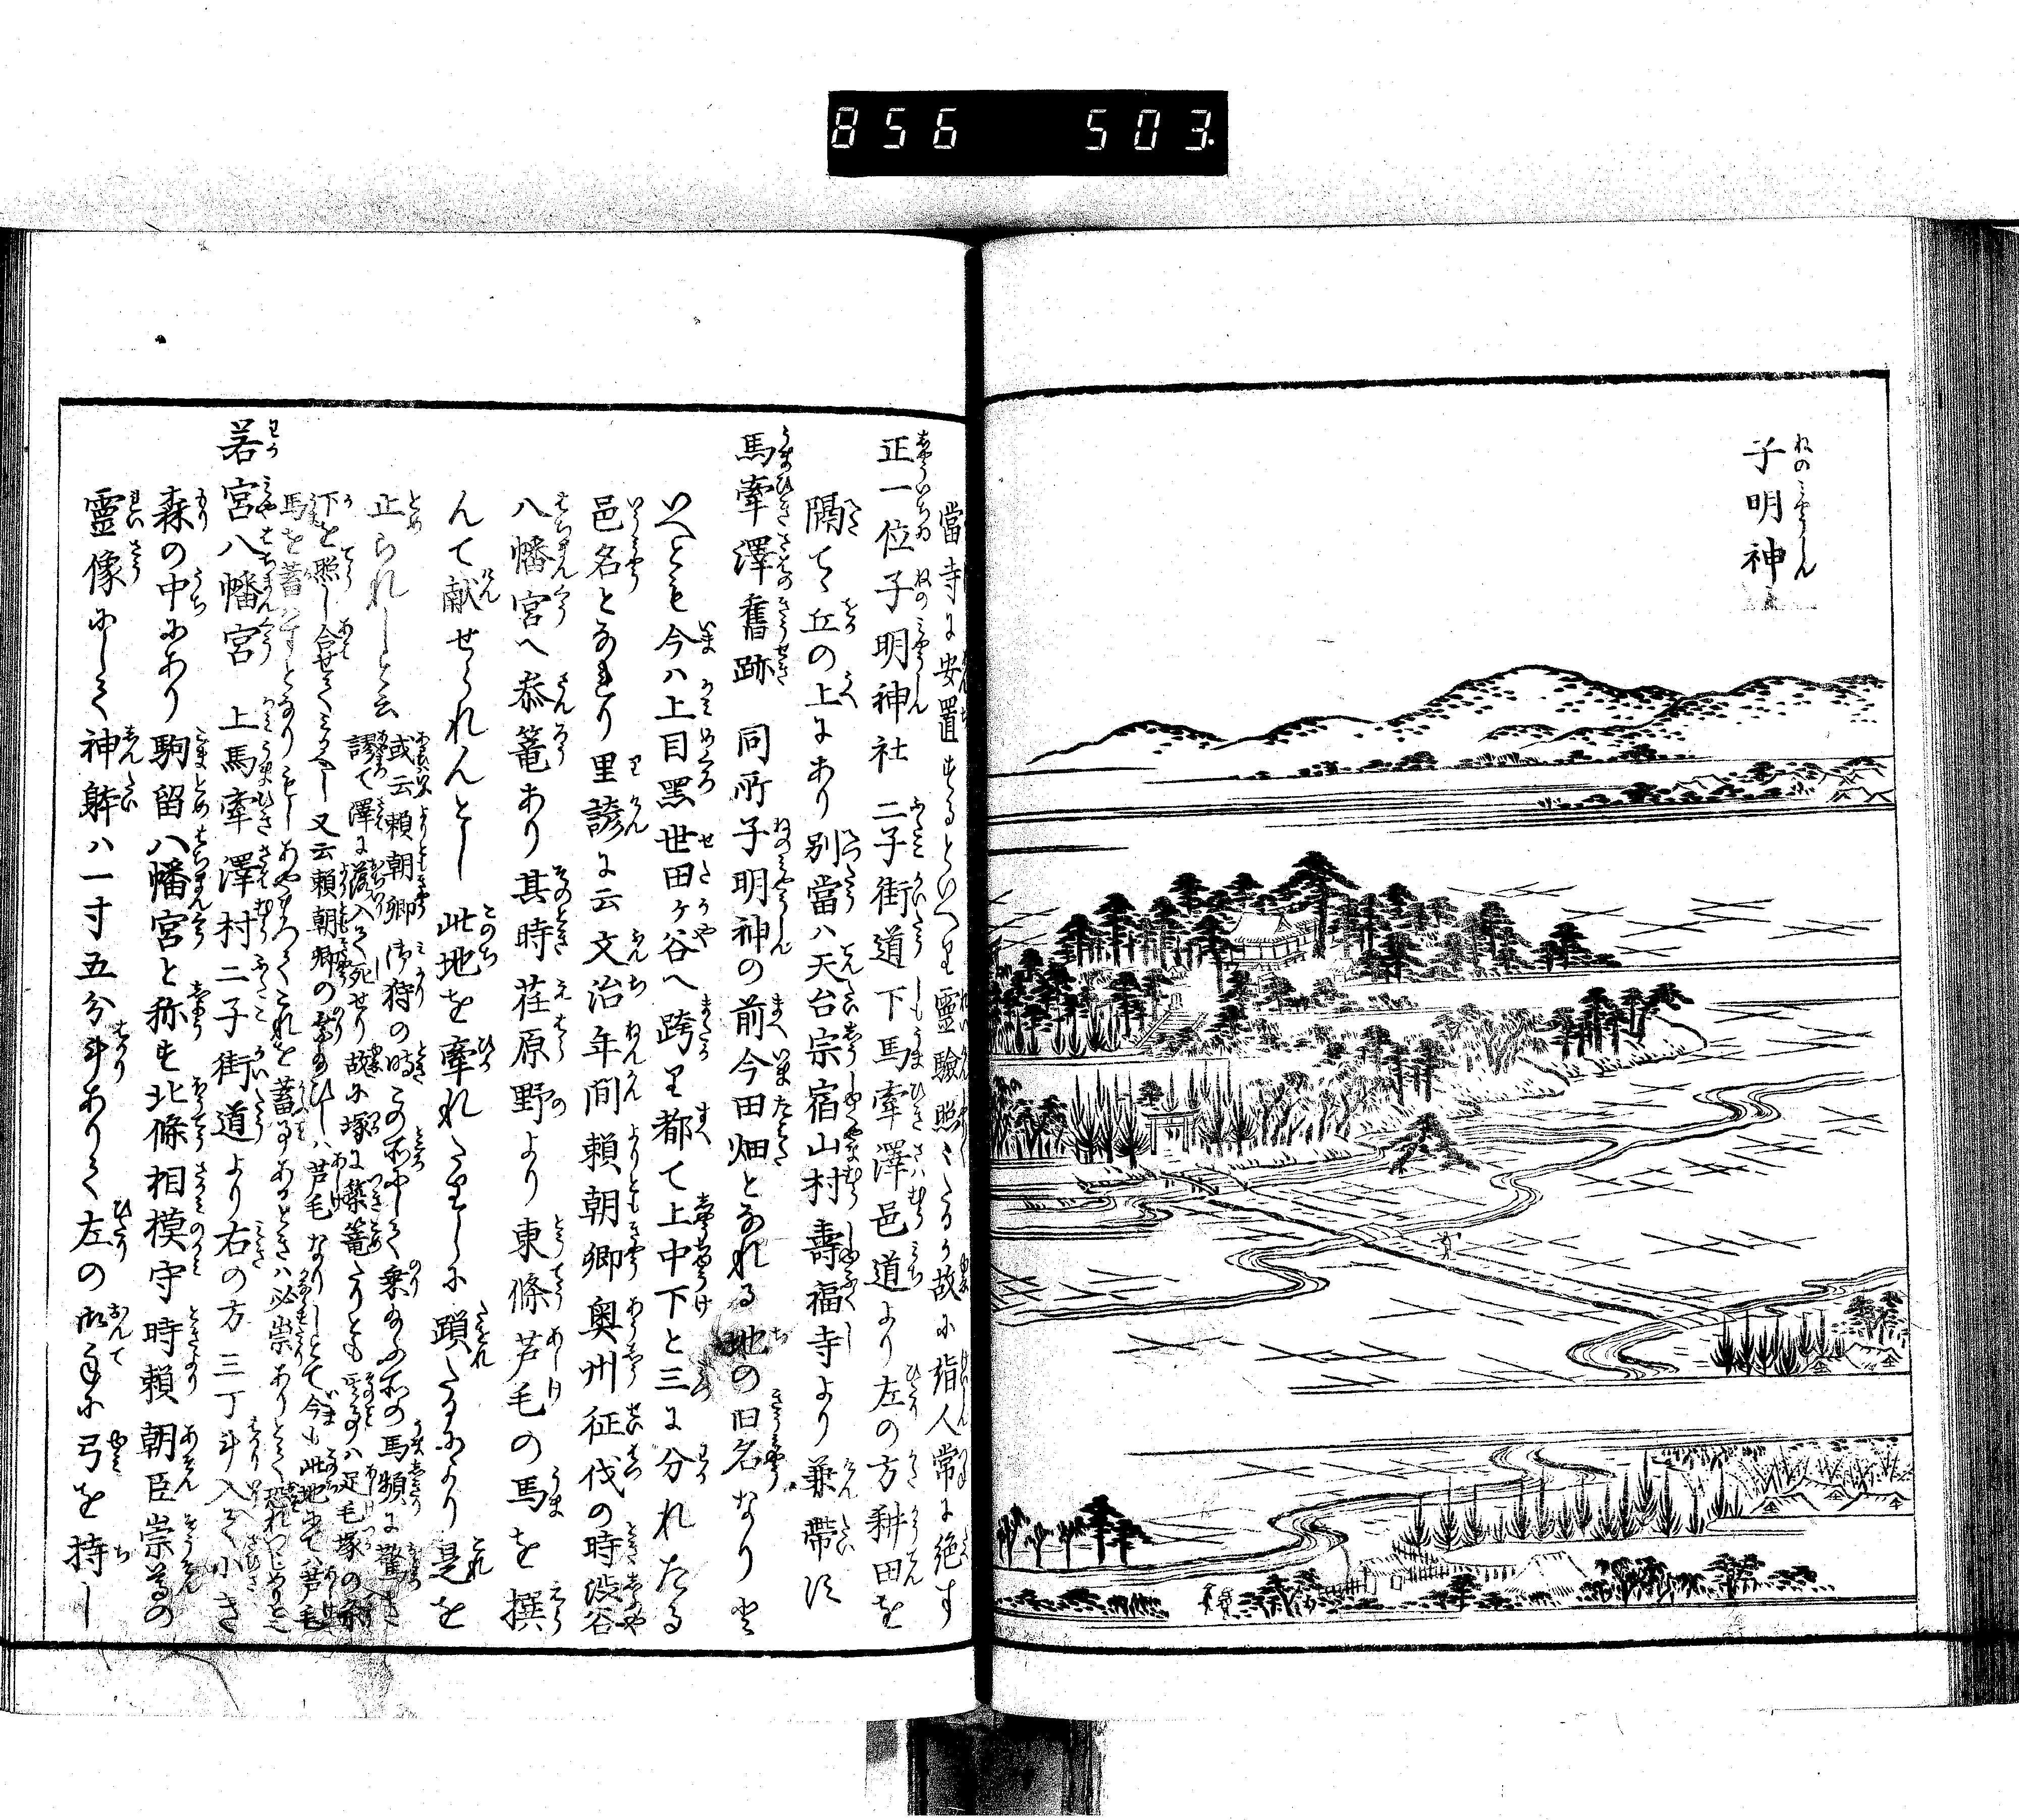 856 503
子明神社
當寺に安置するといへり靈驗照々たるか故に詣人常に絶す
正一位子明神社 二子街道下馬牽澤邑道より左の方耕田を
隔てゝ丘の上にあり別當ハ天台宗宿山村壽福寺より兼帶す
馬牽澤舊跡 同所子明神の前今田畑となれる地の旧名なりと
いへとも今ハ上目黒世田ヶ谷へ跨り都て上中下と三に分れたる
邑名となれり里諺に云文治年間頼朝卿奥州征伐の時渋谷
八幡宮へ参篭あり其時荏原野より東條芦毛の馬を撰
んて献せられんとし此地を牽れたりしに蹟たるにより是を
止られしと云
或云頼朝卿御狩の時この所にて乗給ふ所の馬頻に驚き
謬て澤に落入て死せり故に塚に築篭たりとも
下を照し合せてミるへし又云頼朝卿の
馬を蓄ハすとなり
若宮八幡宮 上馬牽澤村二子街道より右の方三丁斗入て小き
森の中にあり駒留八幡宮と称す北條相模守時頼朝臣崇尊の
靈像にして神躰ハ一寸五分斗ありて左の御手に弓を持し